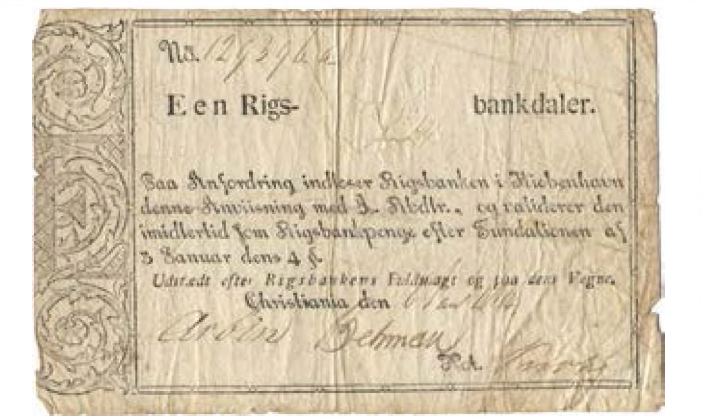 No. 1293966
Een Rigs- bankdaler.
Paa Anfordring indløser Rigsbanken i Kiøbenhavn
denne Anviisning med 1 Rbdlr., og validerer den
imidlertid som Rigsbankpenge efter Fundationen af
5 Januar dens 4 §.
Udstædt efter Rigsbankens Fuldmagt og paa dens Vegne.
Christiania den